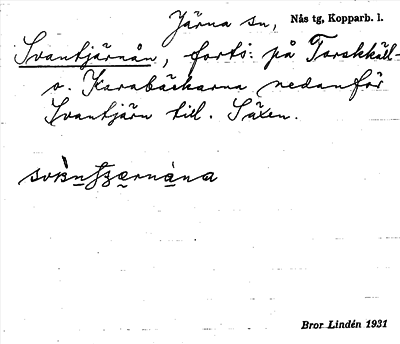 Järna sn, Nås tg, Kopparb. l.
Svantjärnån, forts: på Torskkäll-
o. Karabäckarna nedanför
Svantjärn till. Säxen.
Bror Lindén 1931